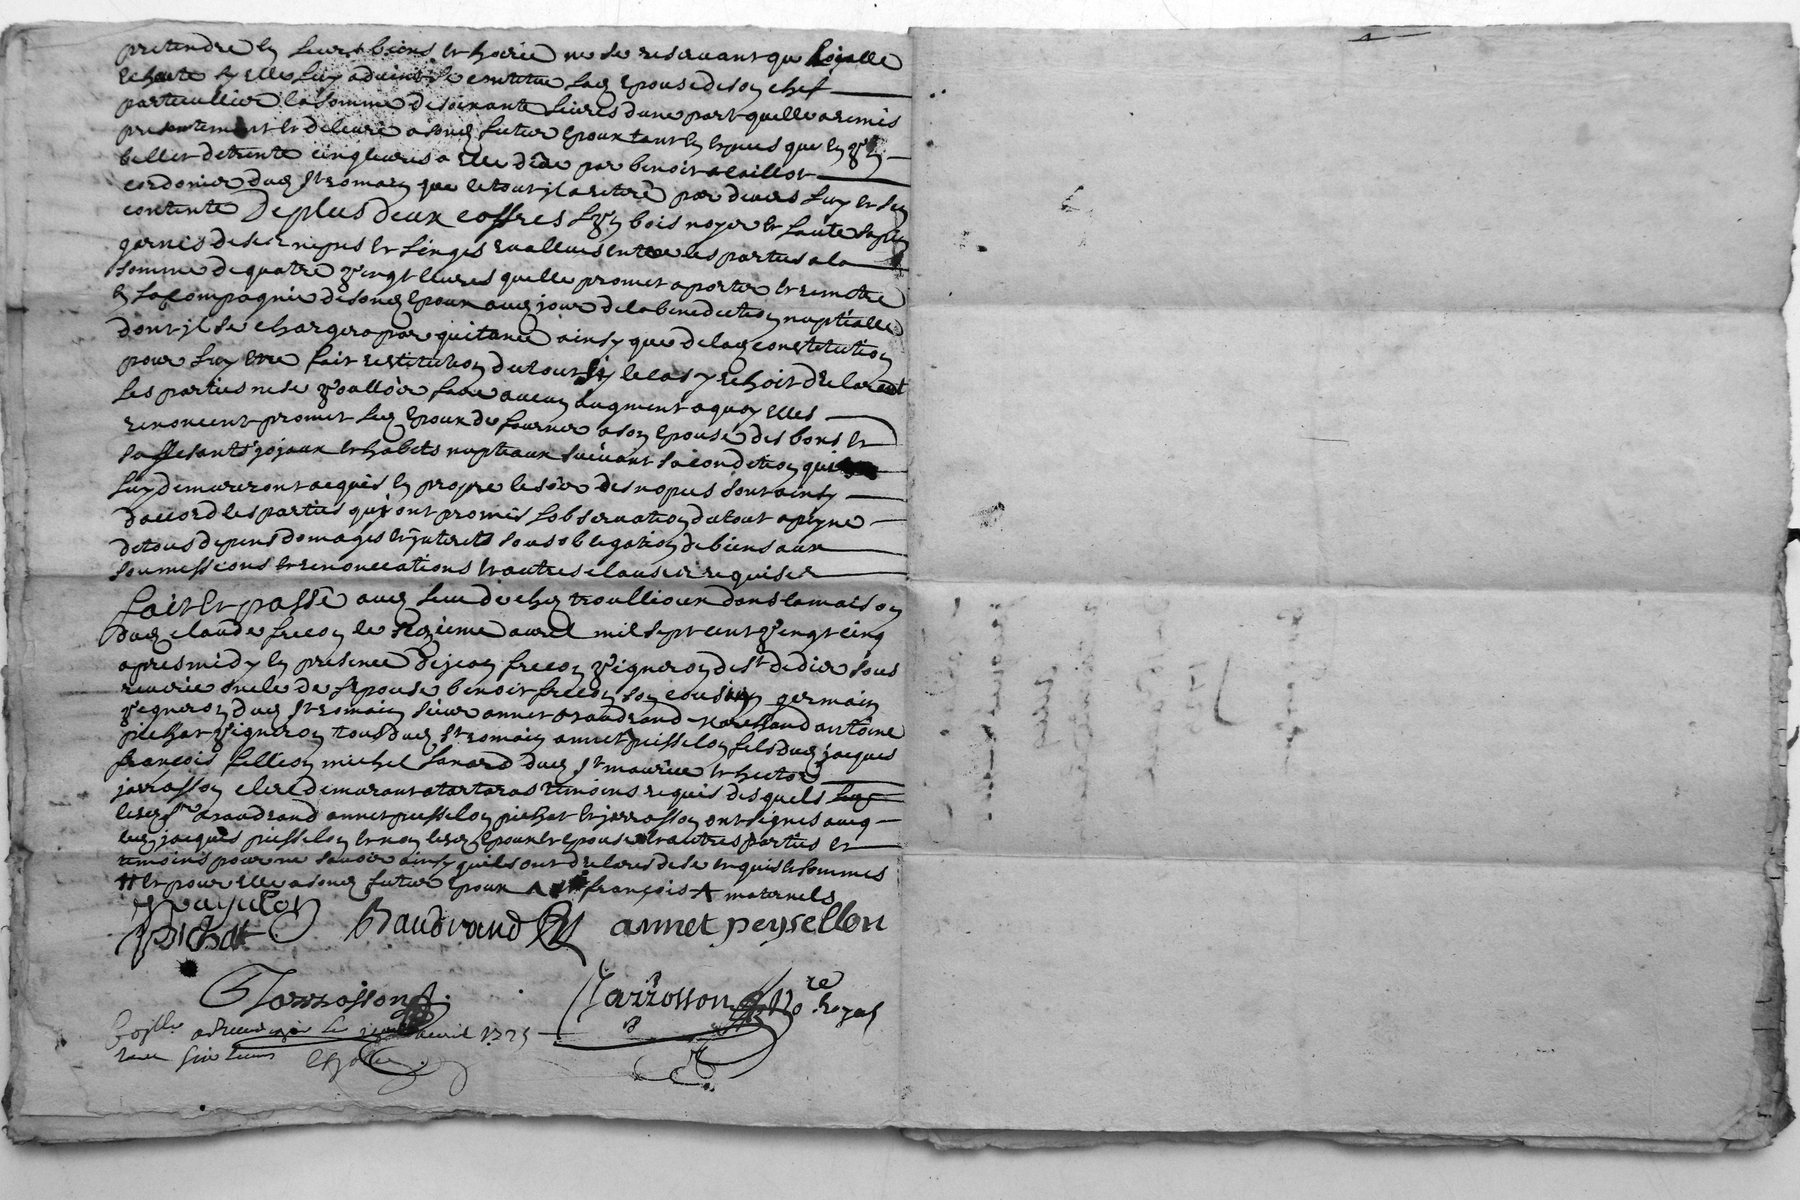 pretendre en leurs biens et hoirie ne se reservant que loyalle
echeute sy elle luy advient se constitue lad epouse de son chef
particullier la somme de soixante livres dune part quelle a remis
presentement et delivré a sond futur epoux tant en especes que en un
billet de trente cinq livres a elle deue par benoit caillot
cordonier dud St romain que le tout il a retiré par devers luy et sen
contente de plus deux coffres lun bois noyer et lautre sapin
garnis de ses nipes et linges evallues entre les parties a la
somme de quatre vingt livres quelle promet aporter et remettre
en la compagnie de sond epoux aud jour de la benediction nuptialle
dont il se chargera par quitance ainsy que de lad constitution
pour luy etre fait restitution du tout sy le cas y echoit declarant
les parties ne se voulloir faire aucun augment a quoy elles
renoncent promet led epoux de fournir a son epouse des bons et
suffisants joyaux et habits nuptiaux suivant sa condition qui
luy demeureront acquis en propre le soir des nopces sont ainsy
daccord les parties qui ont promis lobservation du tout a peyne
de tous depens domages et interets sous obligation de biens aux
soumissions et renonciations et autres clauses requises
fait et passé aud lieu de chez troullieux dans la maison
dud claude frecon le sezieme avril mil sept cent vingt cinq
apres midy en presence de jean frecon vigneron de St didier sous
riverie oncle de lepouse benoit frecon son cousin germain
vigneron dud St romain sieur annet baudrand marchand antoine
pichat vigneron tous dud St romain annet peisselon fils dud jacques
françois fillion michel fanard dud St maurice et hector
jarrosson clerc demeurant a tartaras temoins requis desquels
lesd Sr baudrand annet peisselon pichat et jarrosson ont signes avec
led jacques peisselon et non lesd epoux et epouse et autres parties et
temoins pour ne savoir ainsy quils ont declares de ce enquis et sommes
et pour elle a sond futur epoux françois maternels
Pichat Baudrand annet peysellon
Jarrosson Jarrosson No.re Royal
avril 1725